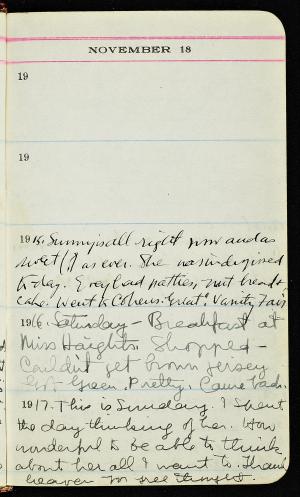 NOVEMBER 18
19
19
1915. Sunny is all right now and as
sweet (!) as ever. She was indisposed
to-day. Eve, had patties, nut bread +
cake. Went to Cohens. Great! Vanity Fair
1916. Saturday - Breakfast at
Miss Haights. Shopped -
Couldn't get brown jersey
Got Green. Pretty. Came back.
1917. This is Sunday. I spent
the day thinking of her. How
wonderful to be able to think
about her all I want to. Thank
heaven for free thought.